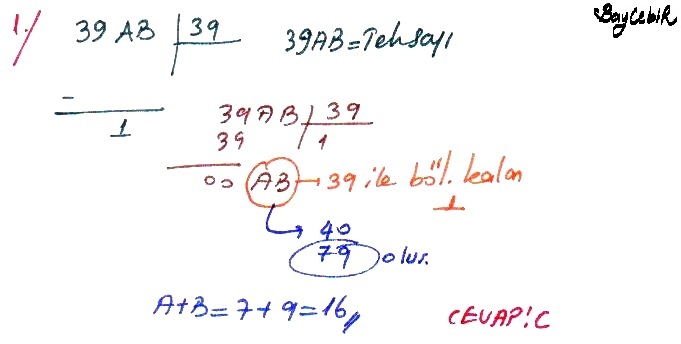 BayCebiR
1.)
39AB | 39
39AB=Tek sayı
-
1
39AB | 39
39 | 1
00 AB → 39 ile böl. kalan
1
40
79 olur.
A+B=7+9=16//
CEVAP: C